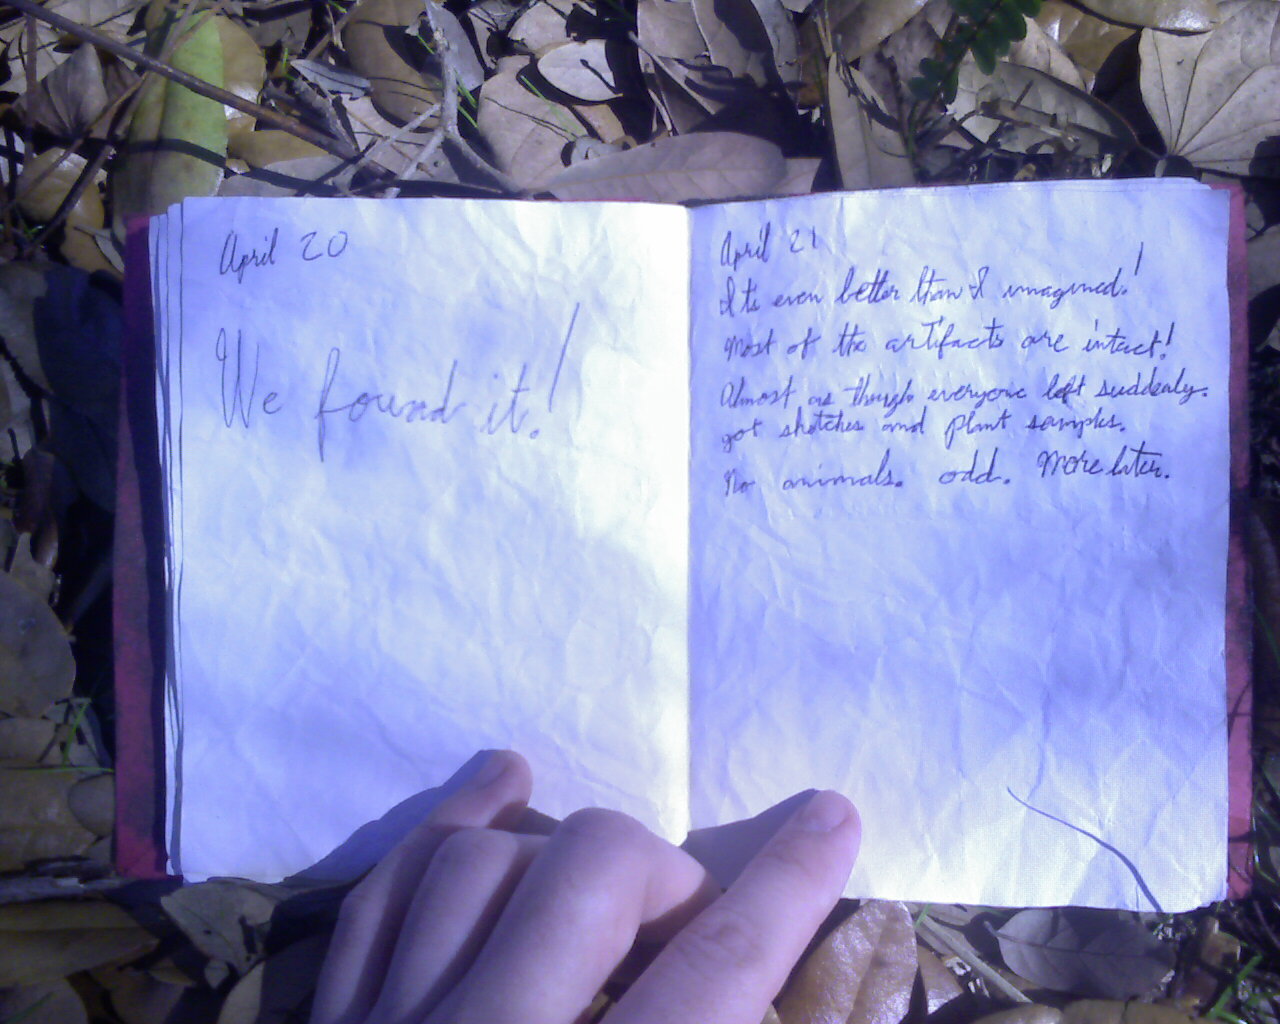 April 20
We found it!
April 21
Its even better than I imagined!
Most of the artifacts are intact!
Almost as though everyone left suddenly.
got sketches and plant samples.
No animals. odd. More later.